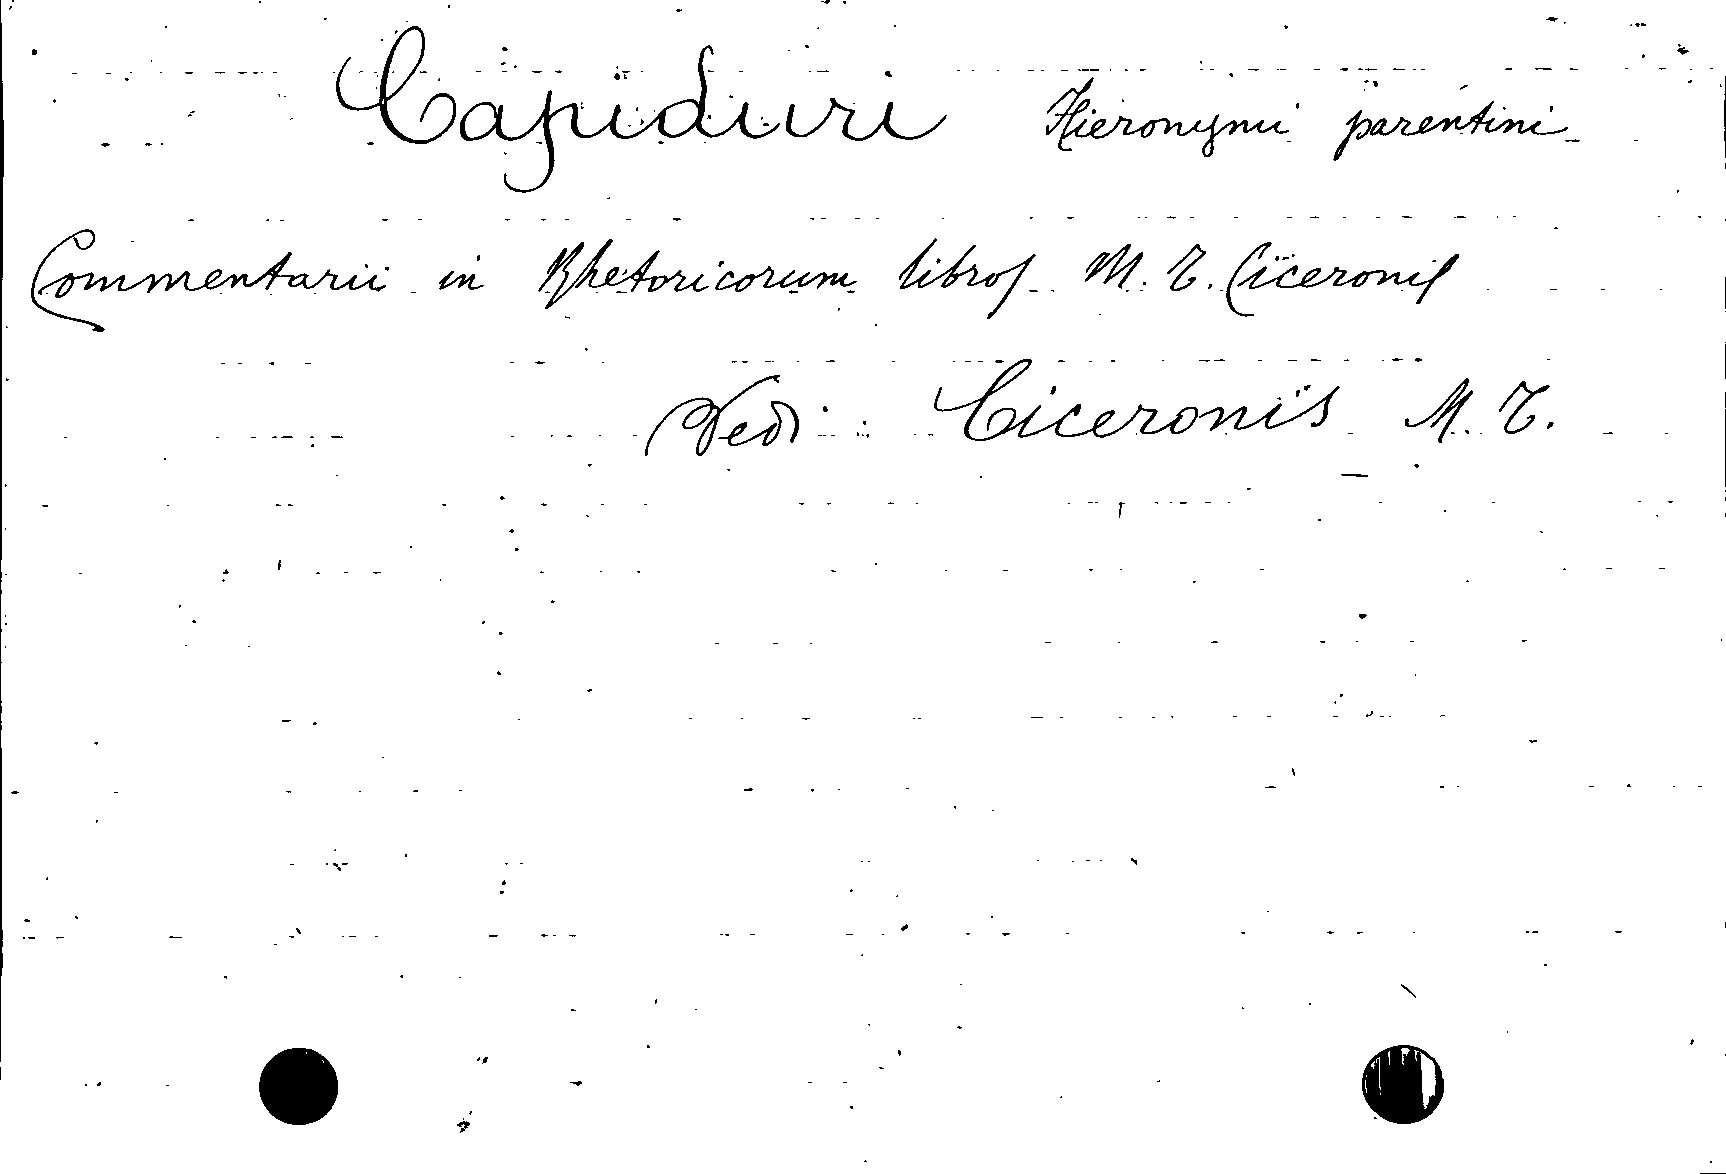 Capiduri Hieronymi parentini
Commentarii in Rhetoricorum libros M. T. Ciceronis
Vedi: Ciceronis M. T.